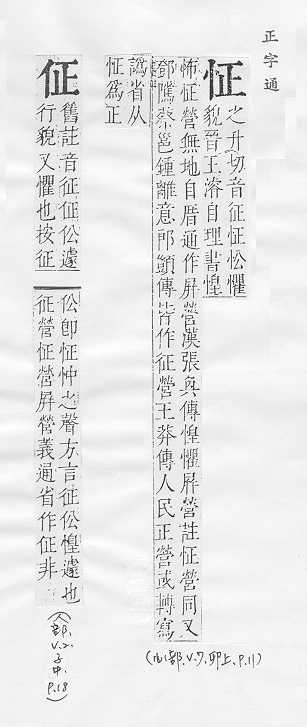 正字通
怔
之升切音征怔忪懼
貌晉王濬自理書惶
怖怔營無地自厝通作屏營漢張奐傳惶懼屏營註怔營同又
鄧騭蔡邕鍾離意郎顗傳皆作征營王莽傳人民正營或轉寫
譌省从
怔爲正
(心部.V.7.卯上.P.11)
佂
舊註音征佂伀遽
行貌又懼也按佂
伀卽怔忡之聲方言佂伀惶遽也
佂營怔營屏營義通省作佂非
(人部.V.2.子中.P.18)